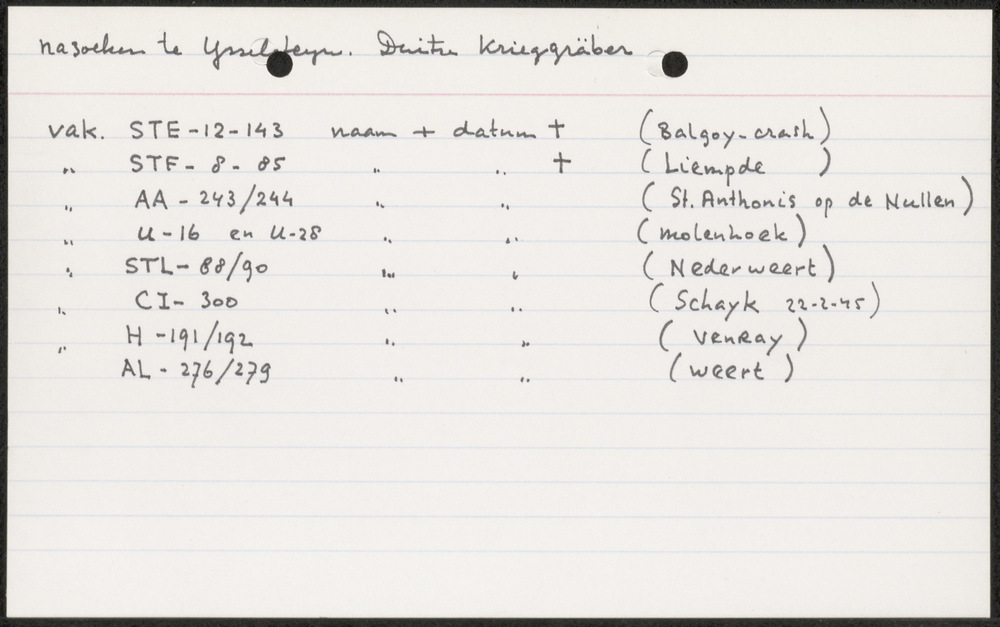 nazoeken te Ysselsteyn. Duitse Krieggräber
vak. STE-12-143 naam + datum † (Balgoy-crash)
" STF- 8 - 85 " " † (Liempde )
" AA - 243/244 " " ( St. Anthonis op de Nullen )
" U-16 en U-28 " " (molenhoek)
" STL- 88/90 " " ( Nederweert)
" CI- 300 " " ( Schayk 22-2-45)
" H -191/192 " " ( venRay )
AL - 276/279 " " ( weert )